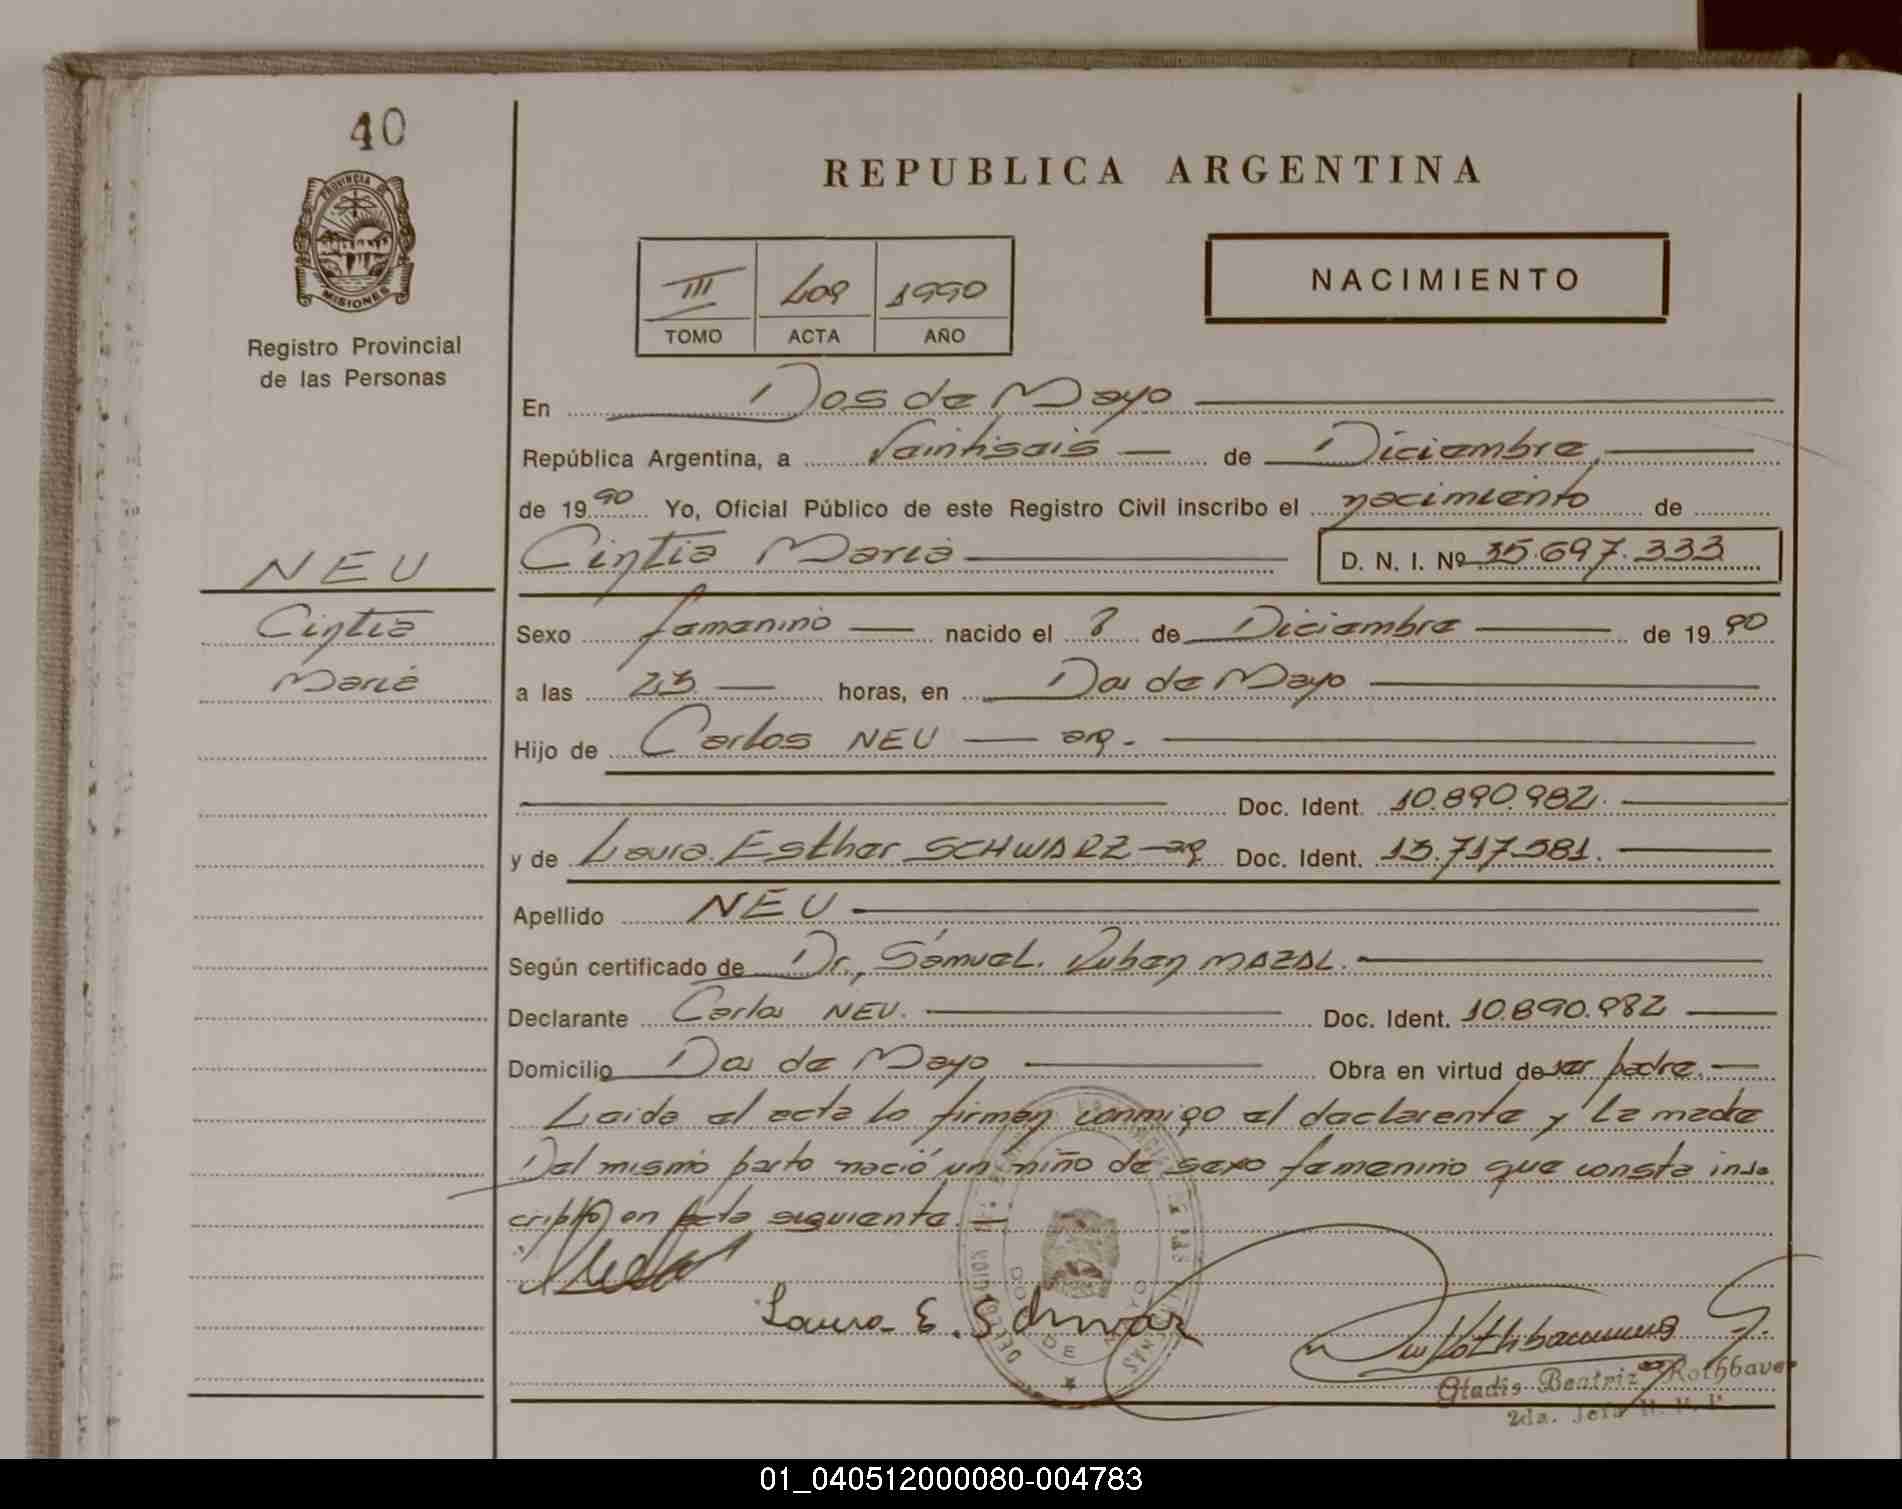 40
REPUBLICA ARGENTINA
PROVINCIA DE
MISIONES
Registro Provincial
de las Personas
III 409 1990
TOMO ACTA AÑO
NACIMIENTO
En Dos de Mayo
República Argentina, a Veintiseis de Diciembre,
de 1990 Yo, Oficial Público de este Registro Civil inscribo el nacimiento de
NEU
Cintia María D. N. I. Nº 35.697.333
Cintia
María
Sexo femenino nacido el 8 de Diciembre de 1990
a las 23 horas, en Dos de Mayo
Hijo de Carlos NEU arg.
Doc. Ident. 10.890.982.
y de Laura Esther SCHWARZ arg Doc. Ident. 13.717.581.
Apellido NEU
Según certificado de Dr, Samuel. Ruben MAZAL.
Declarante Carlos NEU. Doc. Ident. 10.890.982
Domicilio Dos de Mayo Obra en virtud de ser padre.
Leida el acta lo firman conmigo el declarante y la madre
Del mismo parto nació un niño de sexo femenino que consta ins-
cripto en Acta siguiente.
Laura E. Schwarz
DOS DE MAYO
Gladis Beatriz Rothbaver
2da. Jefa
01_040512000080-004783